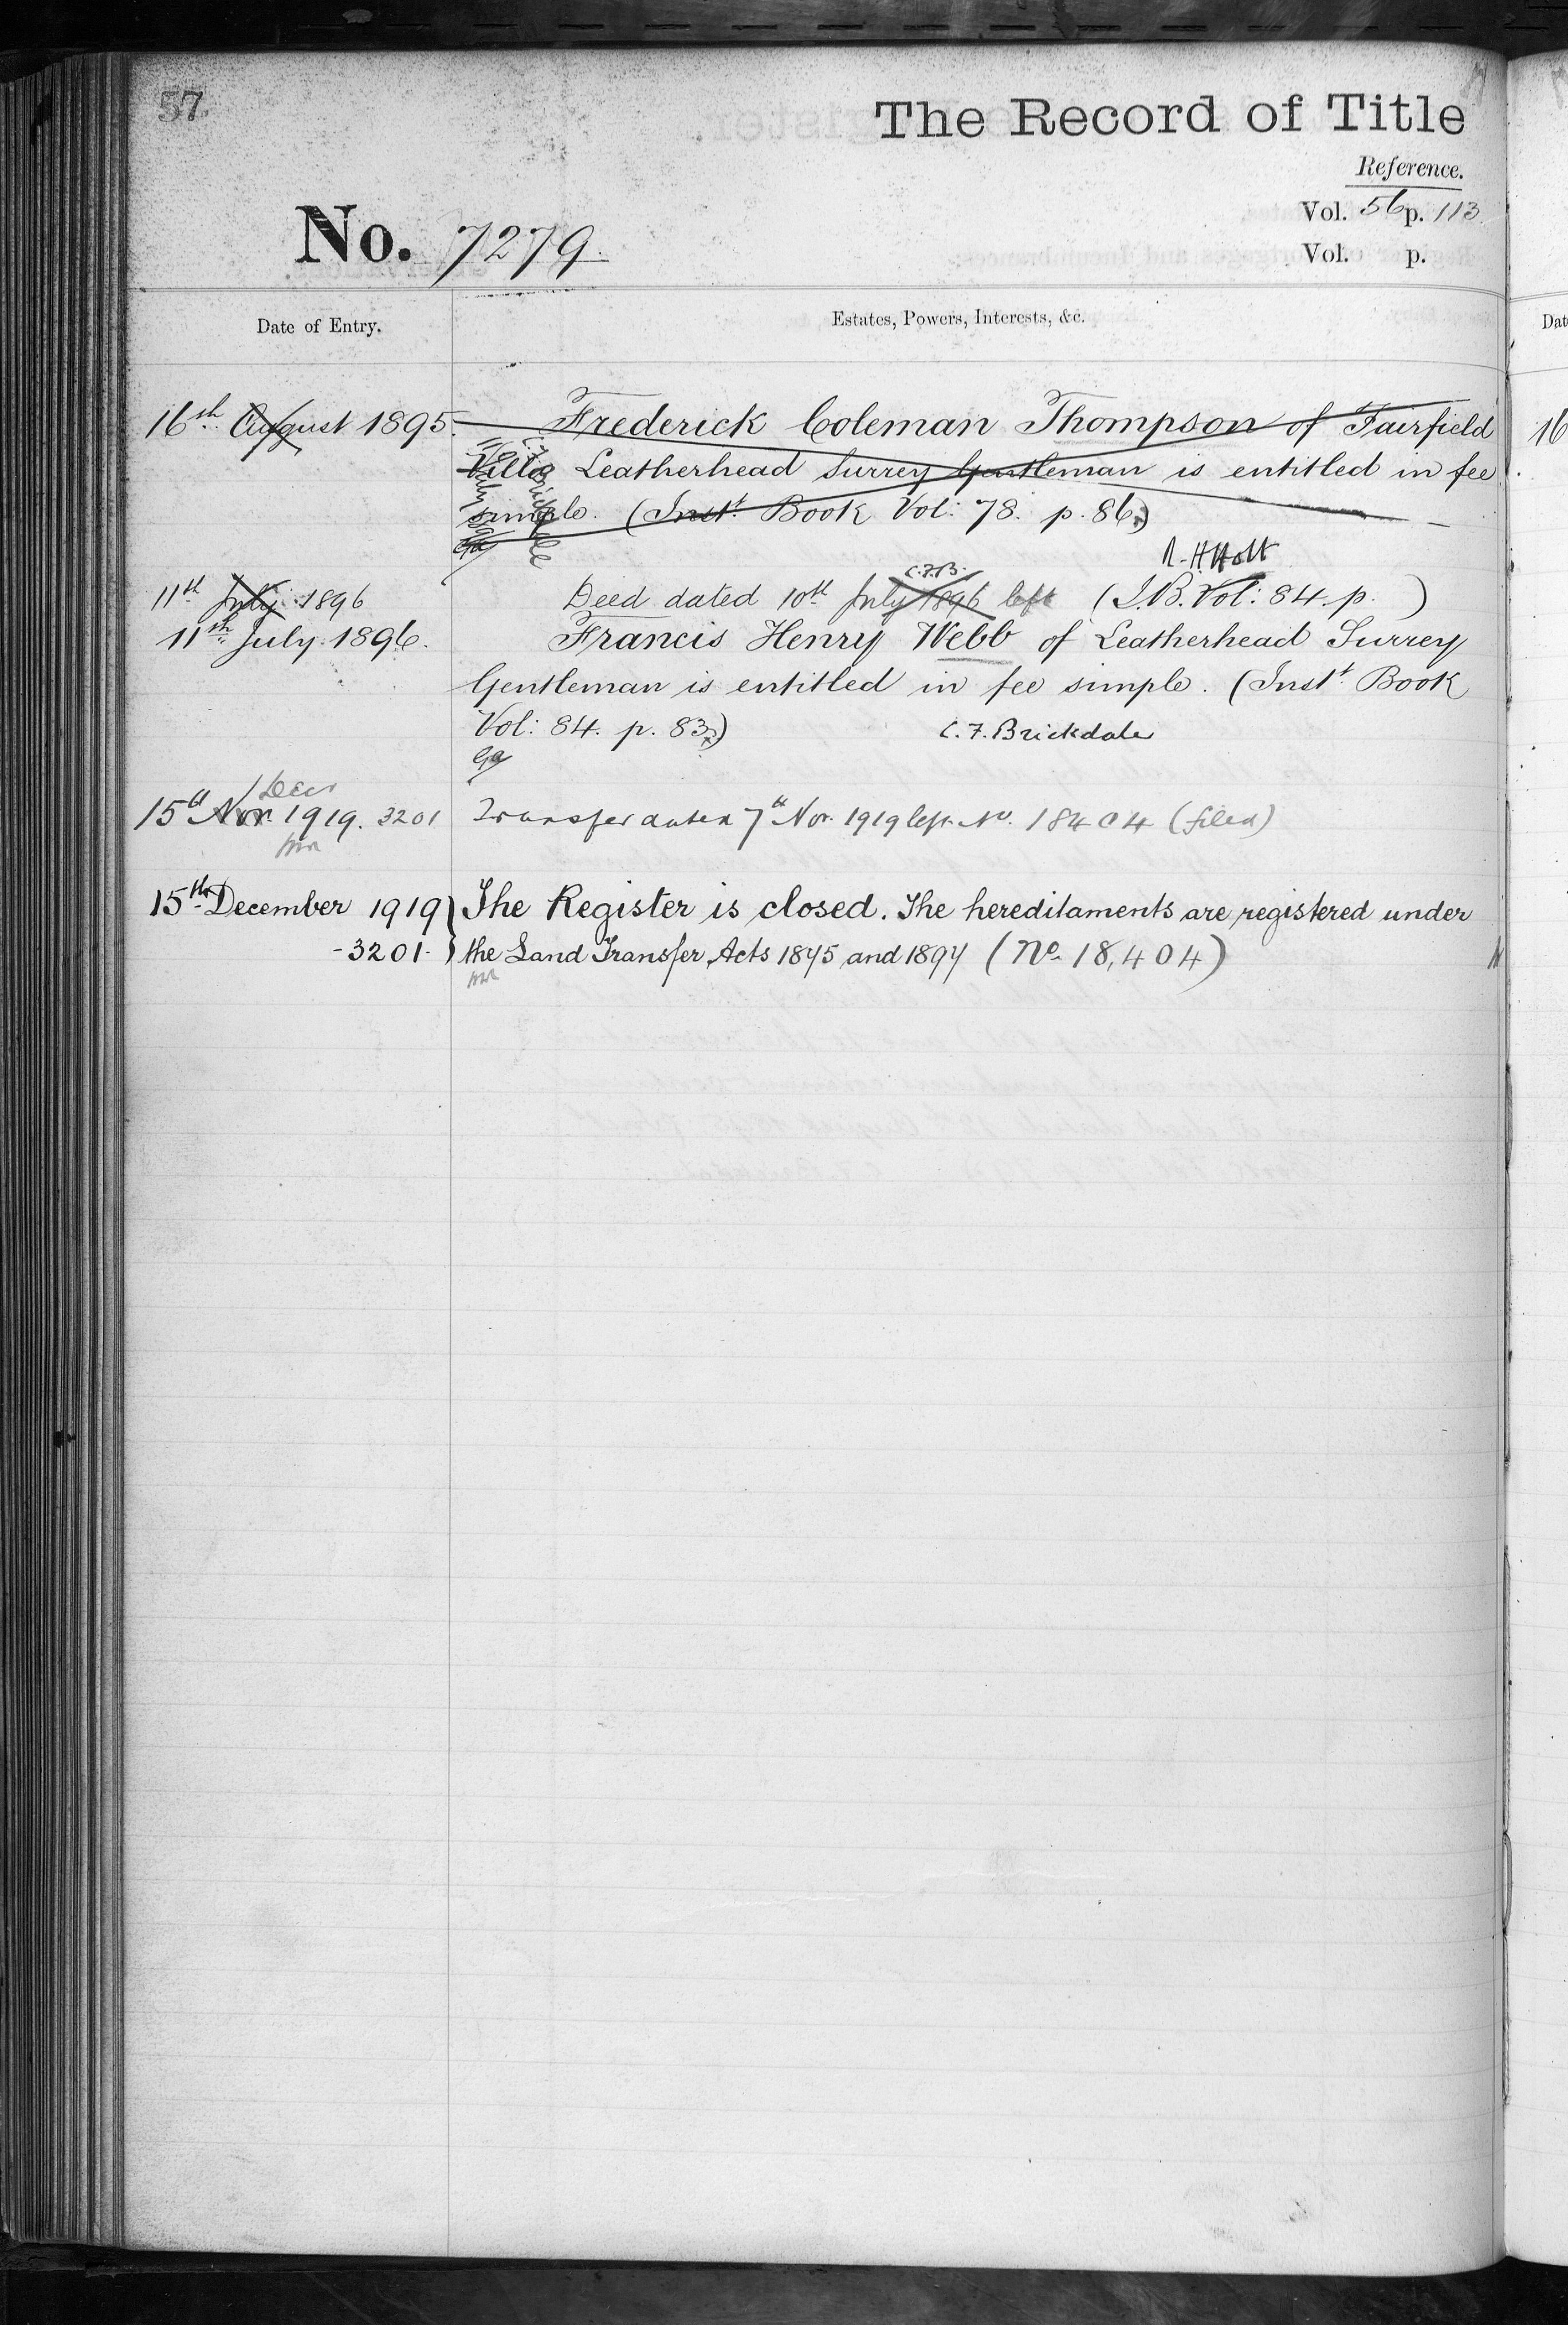 57.
The Record of Title
Reference.
Vol. 56 p. 113.
No. 7279.
Vol. p.
Date of Entry.
Estates, Powers, Interests, &c.
16th August 1895.
Frederick Coleman Thompson of Fairfield
Villa Leatherhead Surrey Gentleman is entitled in fee
simple. (Instt. Book Vol: 78. p. 86.)
R. H. Holt
C.F.B.
11th July 1896
Deed dated 10th July 1896 left (I.B. Vol: 84. p. )
11th July 1896.
Francis Henry Webb of Leatherhead Surrey
Gentleman is entitled in fee simple. (Instt Book
Vol: 84. p. 83.)
C. F. Brickdale
Decr
15th Nov. 1919. 3201
Transfer dated 7th Nov. 1919 left No. 18404 (filed)
15th December 1919
The Register is closed. The hereditaments are registered under
-3201-
the Land Transfer Acts 1875 and 1897 (No. 18,404)
Dat
16